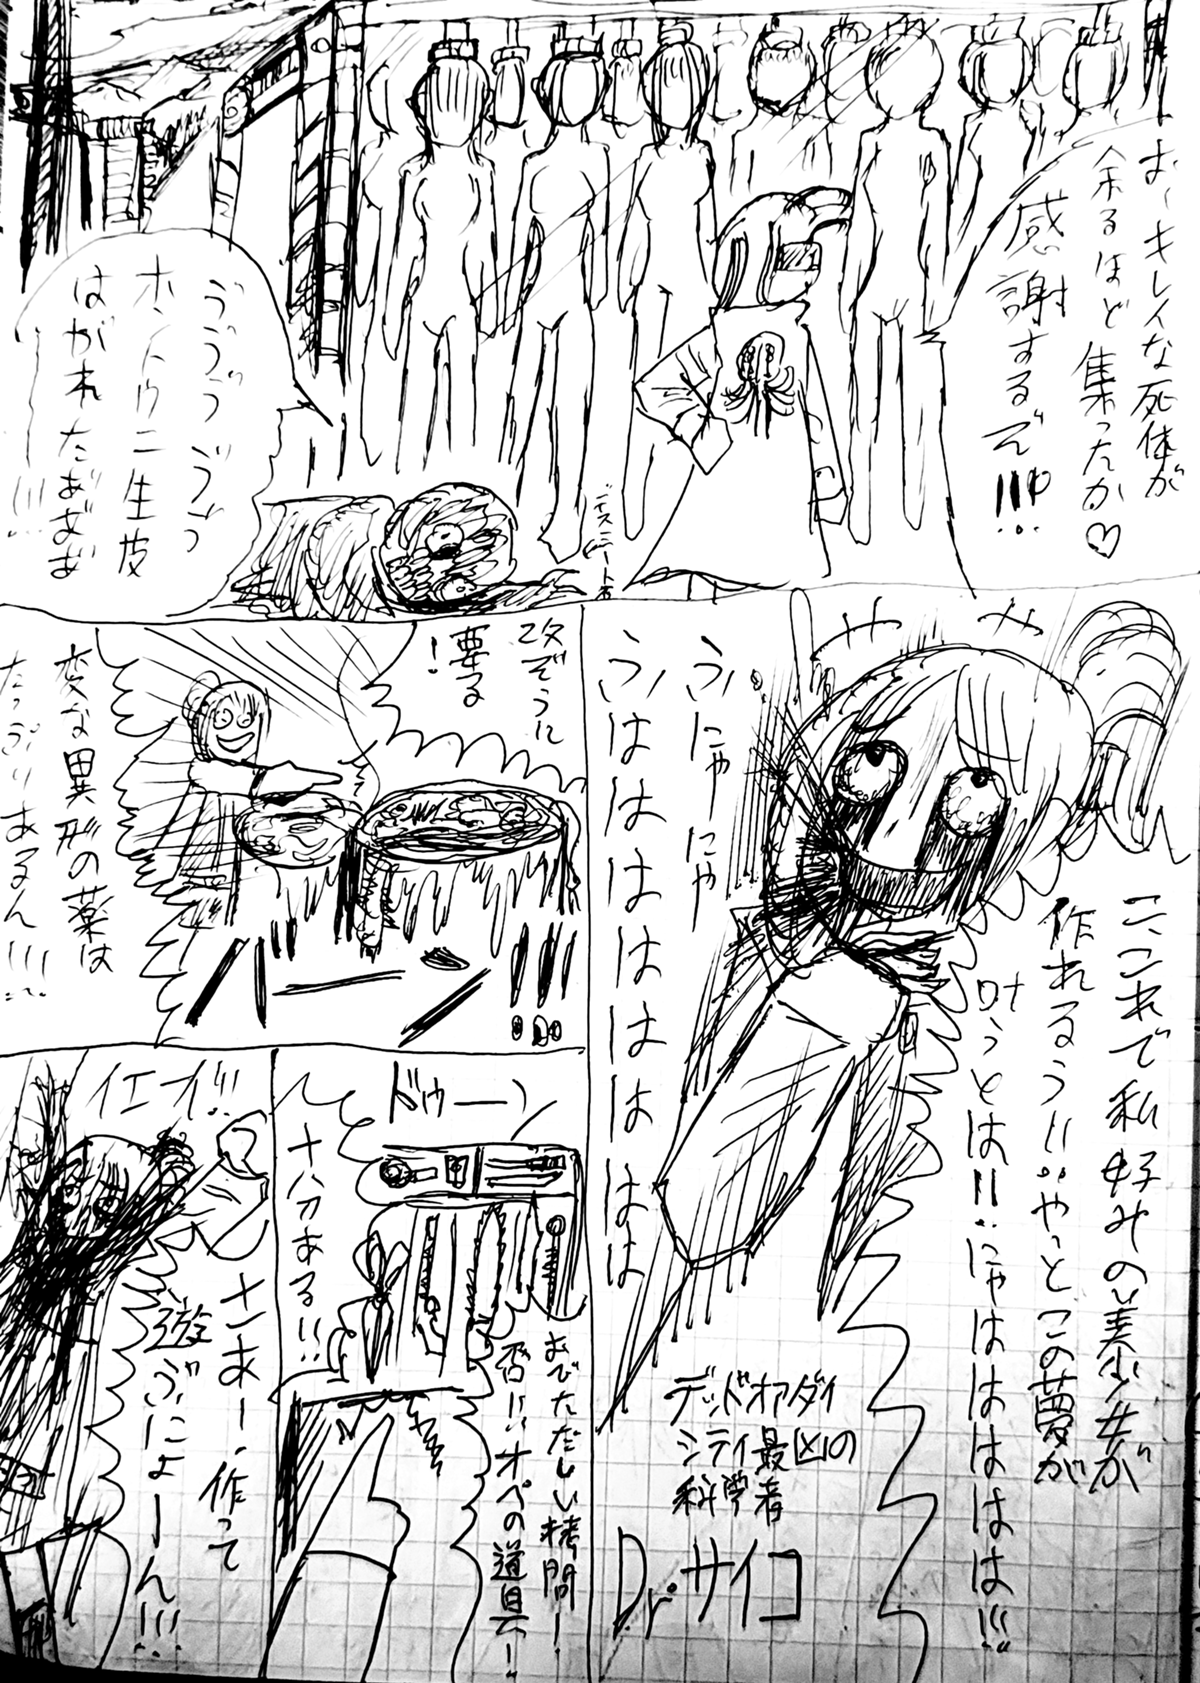 お〜キレイな死体が
余るほど集ったか♡
感謝するぞ!!!
ううううううう
ホントウニ生皮
はがれたああああ
ディスニート君
こ、これで私好みの美少女が
作れるう!!やっとこの夢が
叶うとは!!にゃはははははは!!!
ふにゃにゃ
ふはははははははは
デッドオアダイ
シティ最凶の
科学者
Dr.サイコ
改ぞうに
要る!
変な異形の薬は
たっぷりあるん!!!
ドゥーン
おびただしい拷問!
否!!!オペの道具!
十八刀ある!!
イエイ!!
ナンあー!作って
遊ぶにょーん!!!